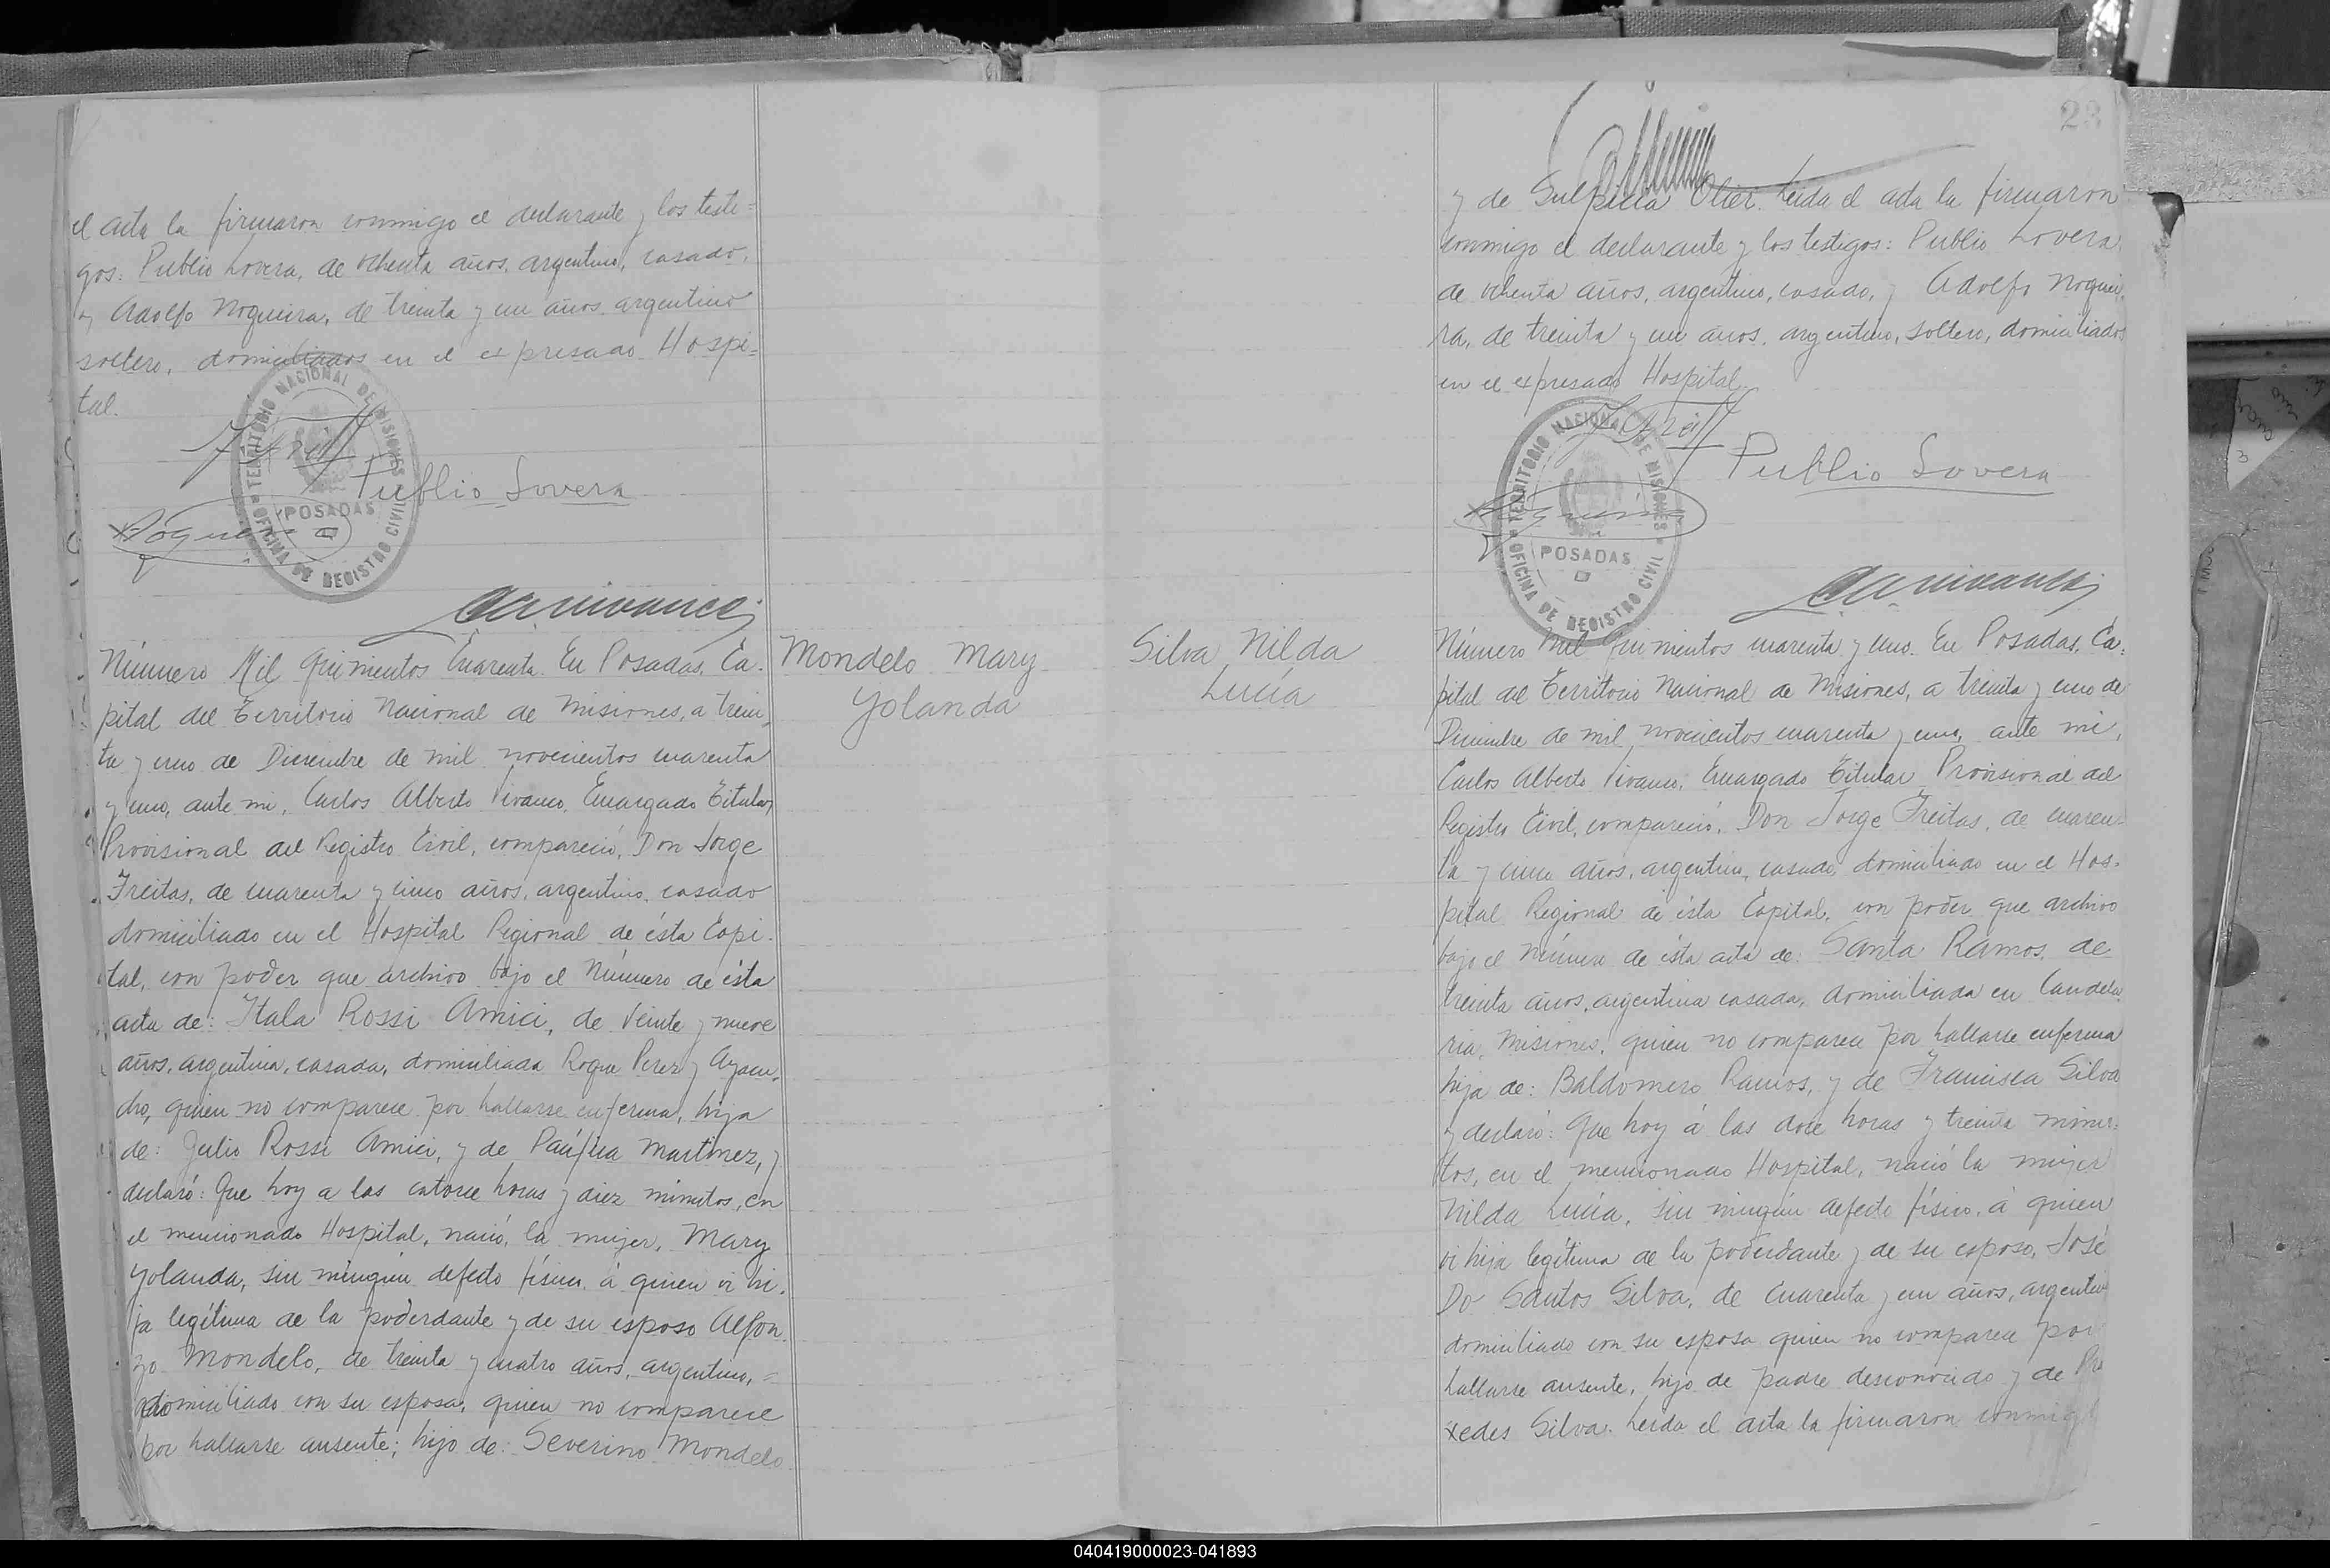 el acta la firmaron conmigo el declarante y los testi=
gos: Publio Lovera, de ochenta años, argentino, casado,
y Adolfo Noqueira, de treinta y un años, argentino
soltero, domiciliados en el expresado Hospi=
tal.
TERRITORIO NACIONAL DE MISIONES
OFICINA DE REGISTRO CIVIL
POSADAS
Publio Lovera
Mondelo Mary
Yolanda
Número Mil Quinientos Cuarenta. En Posadas, Ca-
pital del Territorio Nacional de Misiones, a trein-
ta y uno de Diciembre de mil novecientos cuarenta
y uno, ante mi, Carlos Alberto Vivanco, Encargado Titular
Provisional del Registro Civil, compareció, Don Jorge
Freitas, de cuarenta y cinco años, argentino, casado
domiciliado en el Hospital Regional de ésta Capi-
tal, con poder que archivo bajo el Número de ésta
acta de: Itala Rossi Amici, de veinte y nueve
años, argentina, casada, domiciliada Roque Perez y Ayacu-
cho, quien no comparece por hallarse enferma, hija
de: Julio Rossi Amici, y de Martinez, y
declaró: Que hoy a las catorce horas y diez minutos, en
el mencionado Hospital, nació, la mujer, Mary
Yolanda, sin ningún defecto físico, á quien vi hi-
ja legítima de la poderdante y de su esposo Alfon-
zo Mondelo, de treinta y cuatro años, argentino, =
domiciliado con su esposa, quien no comparece
por hallarse ausente; hijo de: Severino Mondelo
23
y de Sulpicia Olier. Leida el acta la firmaron
conmigo el declarante y los testigos: Publio Lovera,
de ochenta años, argentino, casado, y Adolfo Noquei-
ra, de treinta y un años, argentino, soltero, domiciliados
en el expresado Hospital.
TERRITORIO NACIONAL DE MISIONES
OFICINA DE REGISTRO CIVIL
POSADAS
Publio Lovera
Silva Nilda
Lucía
Número Mil Quinientos cuarenta y uno. En Posadas, Ca-
pital del Territorio Nacional de Misiones, a treinta y uno de
Diciembre de mil novecientos cuarenta y uno, ante mi,
Carlos Alberto Vivanco, Encargado Titular Provisional del
Registro Civil, compareció, Don Jorge Freitas, de cuaren-
ta y cinco años, argentino, casado, domiciliado en el Hos-
pital Regional de ésta Capital, con poder que archivo
bajo el número de ésta acta de: Santa Ramos, de
treinta años, argentina casada, domiciliada en Candela-
ria, Misiones, quien no comparece por hallarse enferma
hija de: Baldomero Ramos, y de Francisca Silva
y declaró: Que hoy á las doce horas y treinta minu-
tos, en el mencionado Hospital, nació la mujer
Nilda Lucía, sin ningún defecto físico, á quien
vi hija legítima de la poderdante y de su esposo, José
Do Santos Silva, de cuarenta y un años, argentino
domiciliado con su esposa quien no comparece por
hallarse ausente, hijo de padre desconocido y de Pra
xedes Silva. Leida el acta la firmaron conmigo
040419000023-041893